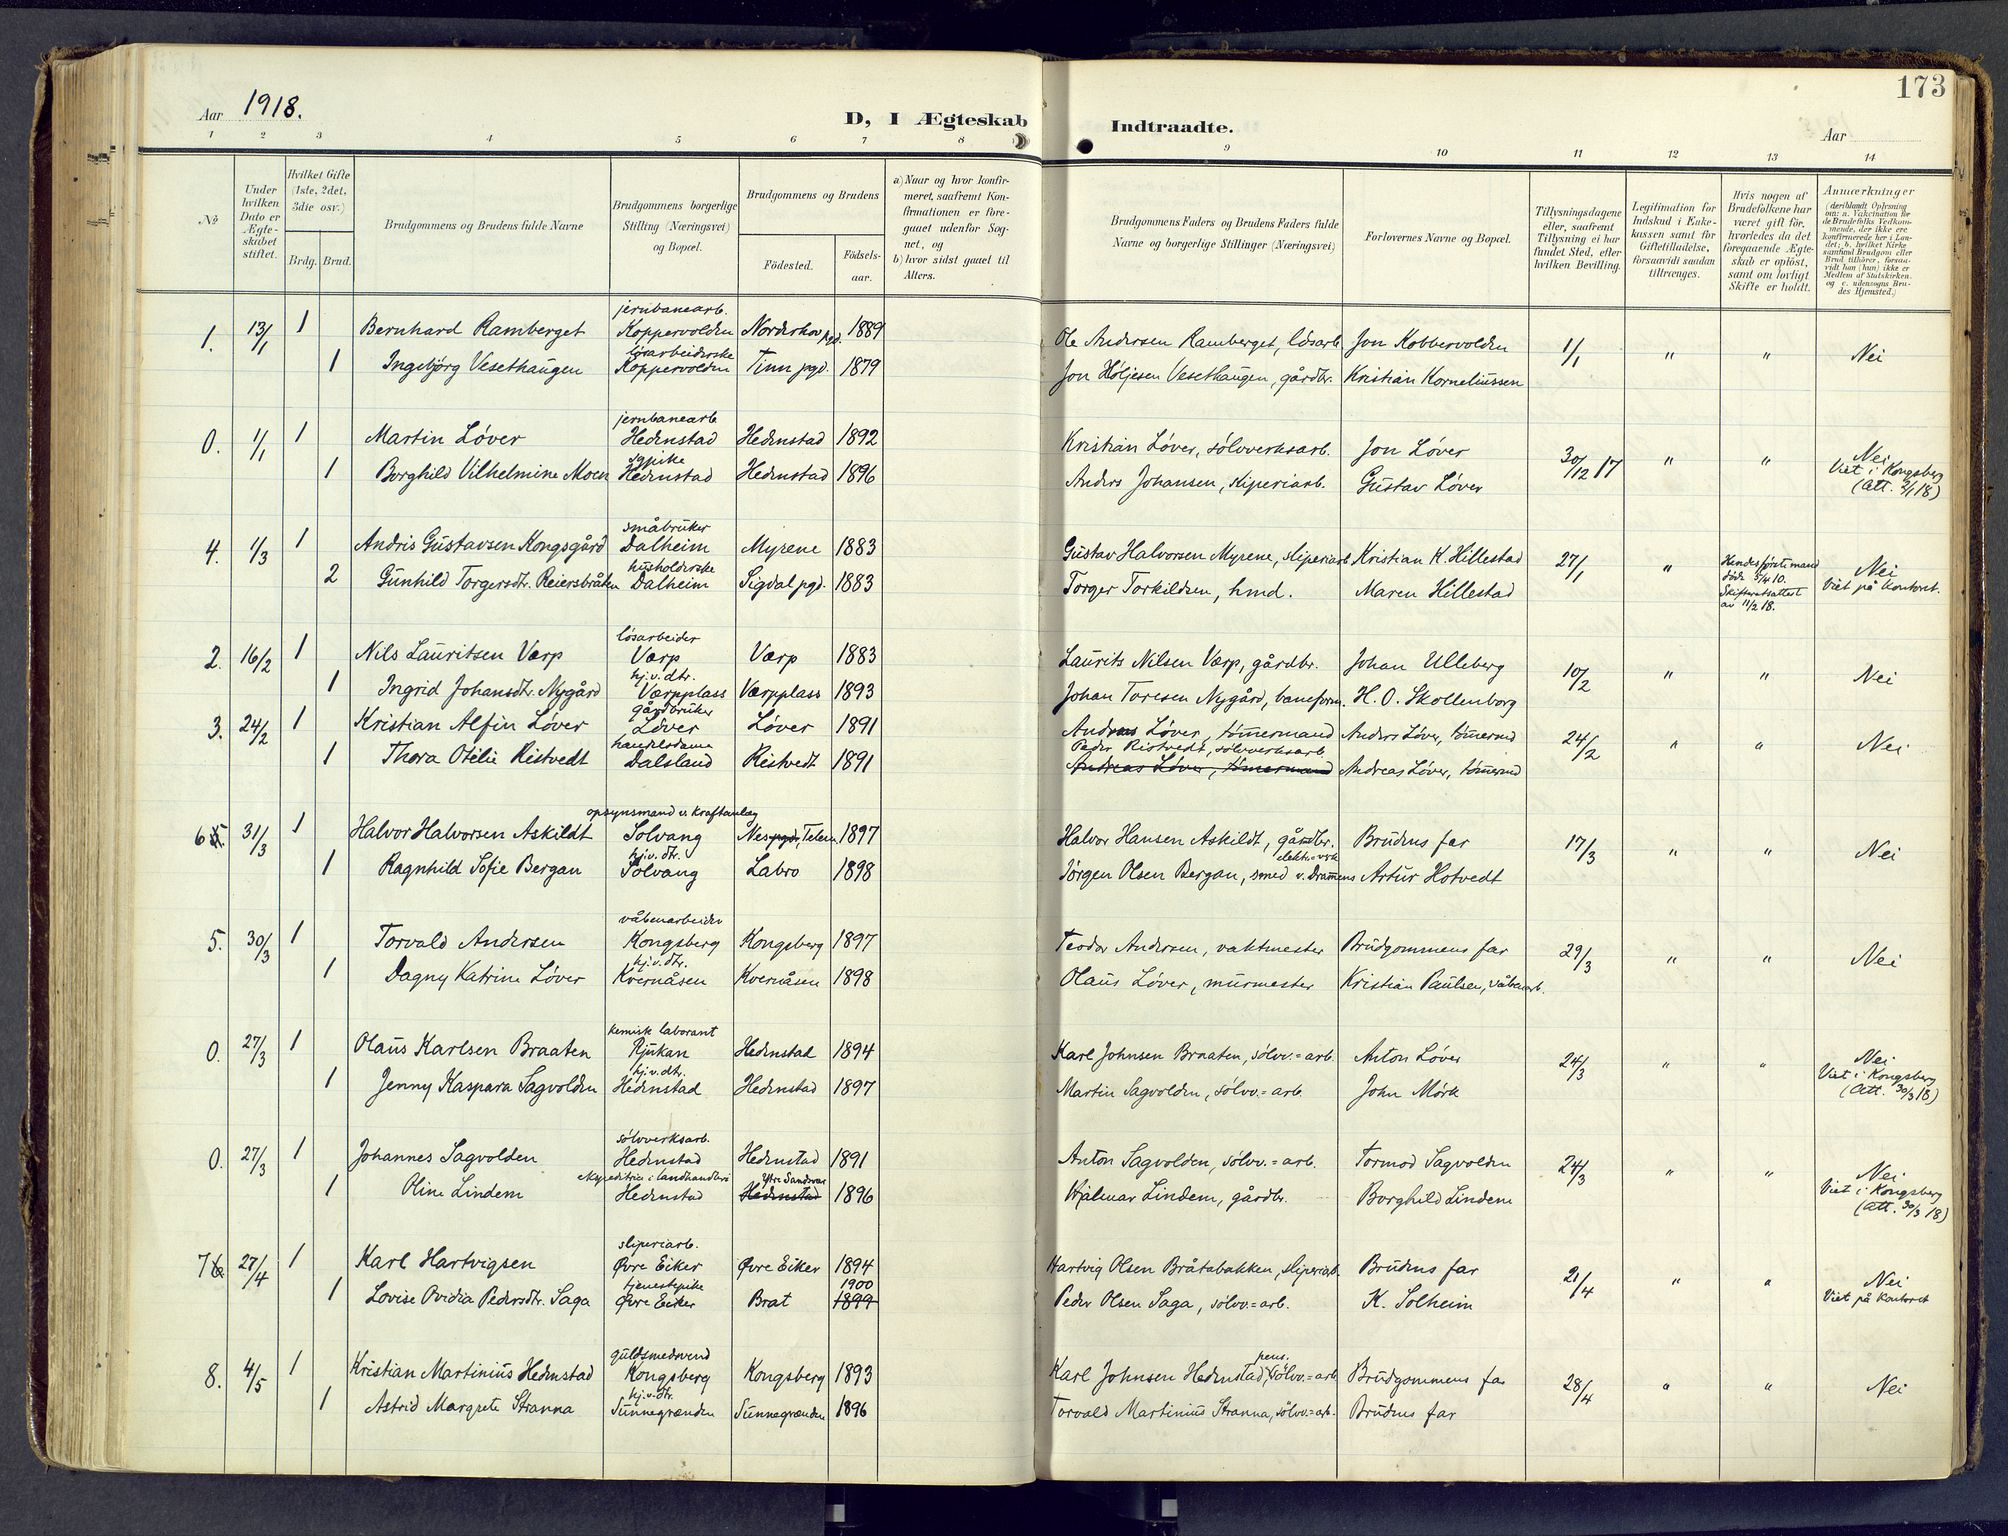 173
Aar 1918.
D, I Ægteskab Indtraadte.
Aar
1 2 3 4 5 6 7 8 9 10 11 12 13 14
№
Under hvilken Dato er Ægteskabet stiftet.
Hvilket Gifte (1ste, 2det, 3die osv.)
Brdg. Brud.
Brudgommens og Brudens fulde Navne
Brudgommens borgerlige Stilling (Næringsvei) og Bopæl.
Brudgommens og Brudens
Fødested.
Fødselsaar.
a) Naar og hvor konfirmeret, saafremt Konfirmationen er foregaaet udenfor Sognet, og
b) hvor sidst gaaet til Alters.
Brudgommens Faders og Brudens Faders fulde Navne og borgerlige Stillinger (Næringsvei)
Forlovernes Navne og Bopæl.
Tillysningsdagene eller, saafremt Tillysning ei har fundet Sted, efter hvilken Bevilling.
Legitimation for Indskud i Enkekassen samt for Giftetilladelse, forsaavidt saadan tiltrænges.
Hvis nogen af Brudefolkene har været gift før, hvorledes da det foregaaende Ægteskab er opløst, samt om lovligt Skifte er holdt.
Anmærkninger (deriblandt Oplysning om: a. Vakcination for de Brudefolks Vedkommende, der ikke ere konfirmerede her i Landet; b. hvilket Kirkesamfund Brudgom eller Brud tilhører, forsaavidt han (hun) ikke er Medlem af Statskirken. og c. udensogns Brudes Hjemsted.)
jernbanearb.
1. 13/1 1 Bernhard Ramberget Koppervolden Norderhov pgd. 1889 Ole Andersen Ramberget, løsarb. Jon Kobbervolden 1/1 " " Nei
løsarbeiderske
1 Ingebjørg Vesethaugen Koppervolden Tinn pgd. 1879 Jon Høljesen Vesethaugen, gårdbr. Kristian Korneliussen
jernbanearb
0. 1/1 1 Martin Løver Hedenstad Hedenstad 1892 Kristian Løver, sølvverksarb. Jon Løver 30/12 17 " " Nei
sypike
1 Borghild Vilhelmine Moen Hedenstad Hedenstad 1896 Anders Johansen, sliperiarb. Gustav Løver Viet i Kongsberg
(Att. 2/1 18)
småbruker
4. 1/3 1 Andris Gustavsen Kongsgård Dalheim Myrene 1883 Gustav Halvorsen Myrene, sliperiarb Kristian K. Hillestad 27/1 " Hendes første mand Nei
husholderske
2 Gunhild Torgersdtr. Reiersbråten Dalheim Sigdal pgd. 1883 Torger Torkildsen, hmd. Maren Hillestad døde 5/4 10. Viet på Kontoret.
Skifteretsattest
av 11/2 18.
løsarbeider
2. 16/2 1 Nils Lauritsen Værp Værp Værp 1883 Laurits Nilsen Værp, gårdbr. Johan Ulleberg 10/2 " " Nei
hj.v. dtr.
1 Ingrid Johansdtr. Nygård Værpplass Værpplass 1893 Johan Toresen Nygård, baneform. H. O. Skollenborg
gårdbruker
3. 24/2 1 Kristian Alfin Løver Løver Løver 1891 Andreas Løver, tømmermand Anders Løver, tømmermd 24/2 " " Nei
handelsdame Peder Ristvedt, sølvverksarb.
1 Thora Otelie Ristvedt Dalsland Ristvedt 1891 Andreas Løver, tømmermand Andreas Løver, tømmermd
opsynsmand v. Kraftanlæg
6 5. 31/3 1 Halvor Halvorsen Askildt Solvang Nes pgd., Telem. 1897 Halvor Hansen Askildt, gårdbr. Brudens far 17/3 " " Nei
hj.v. dtr. elektr.verk
1 Ragnhild Sofie Bergan Solvang Labro 1898 Jørgen Olsen Bergan, smed v. Drammens Artur Hotvedt
våbenarbeider
5. 30/3 1 Torvald Andersen Kongsberg Kongsberg 1897 Teodor Andersen, vaktmester Brudgommens far 29/3 " " Nei
hj.v. dtr.
1 Dagny Katrine Løver Kvernåsen Kvernåsen 1898 Olaus Løver, murmester Kristian Paulsen, våbenarb.
kemisk laborant
0. 27/3 1 Olaus Karlsen Braaten Rjukan Hedenstad 1894 Karl Johnsen Braaten, sølvv.=arb. Anton Løver 24/3 " " Nei
hj.v. dtr.
1 Jenny Kaspara Sagvolden Hedenstad Hedenstad 1897 Martin Sagvolden, sølvv.=arb. John Mørk Viet i Kongsberg
(Att. 30/3 18)
sølvverksarb.
0. 27/3 1 Johannes Sagvolden Hedenstad Hedenstad 1891 Anton Sagvolden, sølvv.=arb. Tormod Sagvolden 24/3 " " Nei
landhandleri
1 Oline Lindem Hedenstad Hedenstad 1896 Hjalmar Lindem, gårdbr. Borghild Lindem Viet i Kongsberg
(Att. 30/3 18)
sliperiarb.
7 6 27/4 1 Karl Hartvigsen Øvre Eiker Øvre Eiker 1894 Hartvig Olsen Bråtabakken, sliperiarb. Brudens far 21/4 " " Nei
tjenestepike 1900
1 Lovise Ovidia Pedersdtr. Saga Øvre Eiker Brat 1899 Peder Olsen Saga, sølvv.=arb. K. Solheim Viet på Kontoret
guldsmedsvend pens.
8. 4/5 1 Kristian Martinius Hedenstad Kongsberg Kongsberg 1893 Karl Johnsen Hedenstad, sølvv.=arb. Brudgommens far 28/4 " " Nei
hj.v. dtr.
1 Astrid Margrete Stranna Sunnegrænden Sunnegrænden 1896 Torvald Martinius Stranna, sølvv.=arb. Brudens far